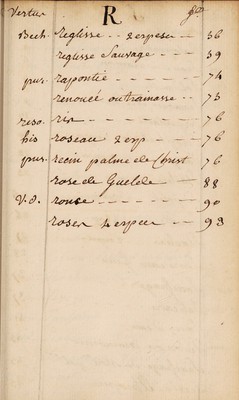 Vertus R
Bech. reglisse .. 2 especes — 36
reglisse Sauvage — — 39
pur. rapontic — — — 74
renoncé ou trainasse — — 75
reso. ris — — — — 76
his roseau 2 esp — — — 76
pur. recin palme de Christ 76
rose de Gueldre — — 88
V.d. ronce — — — — 90
rosier 4 especes — — 93